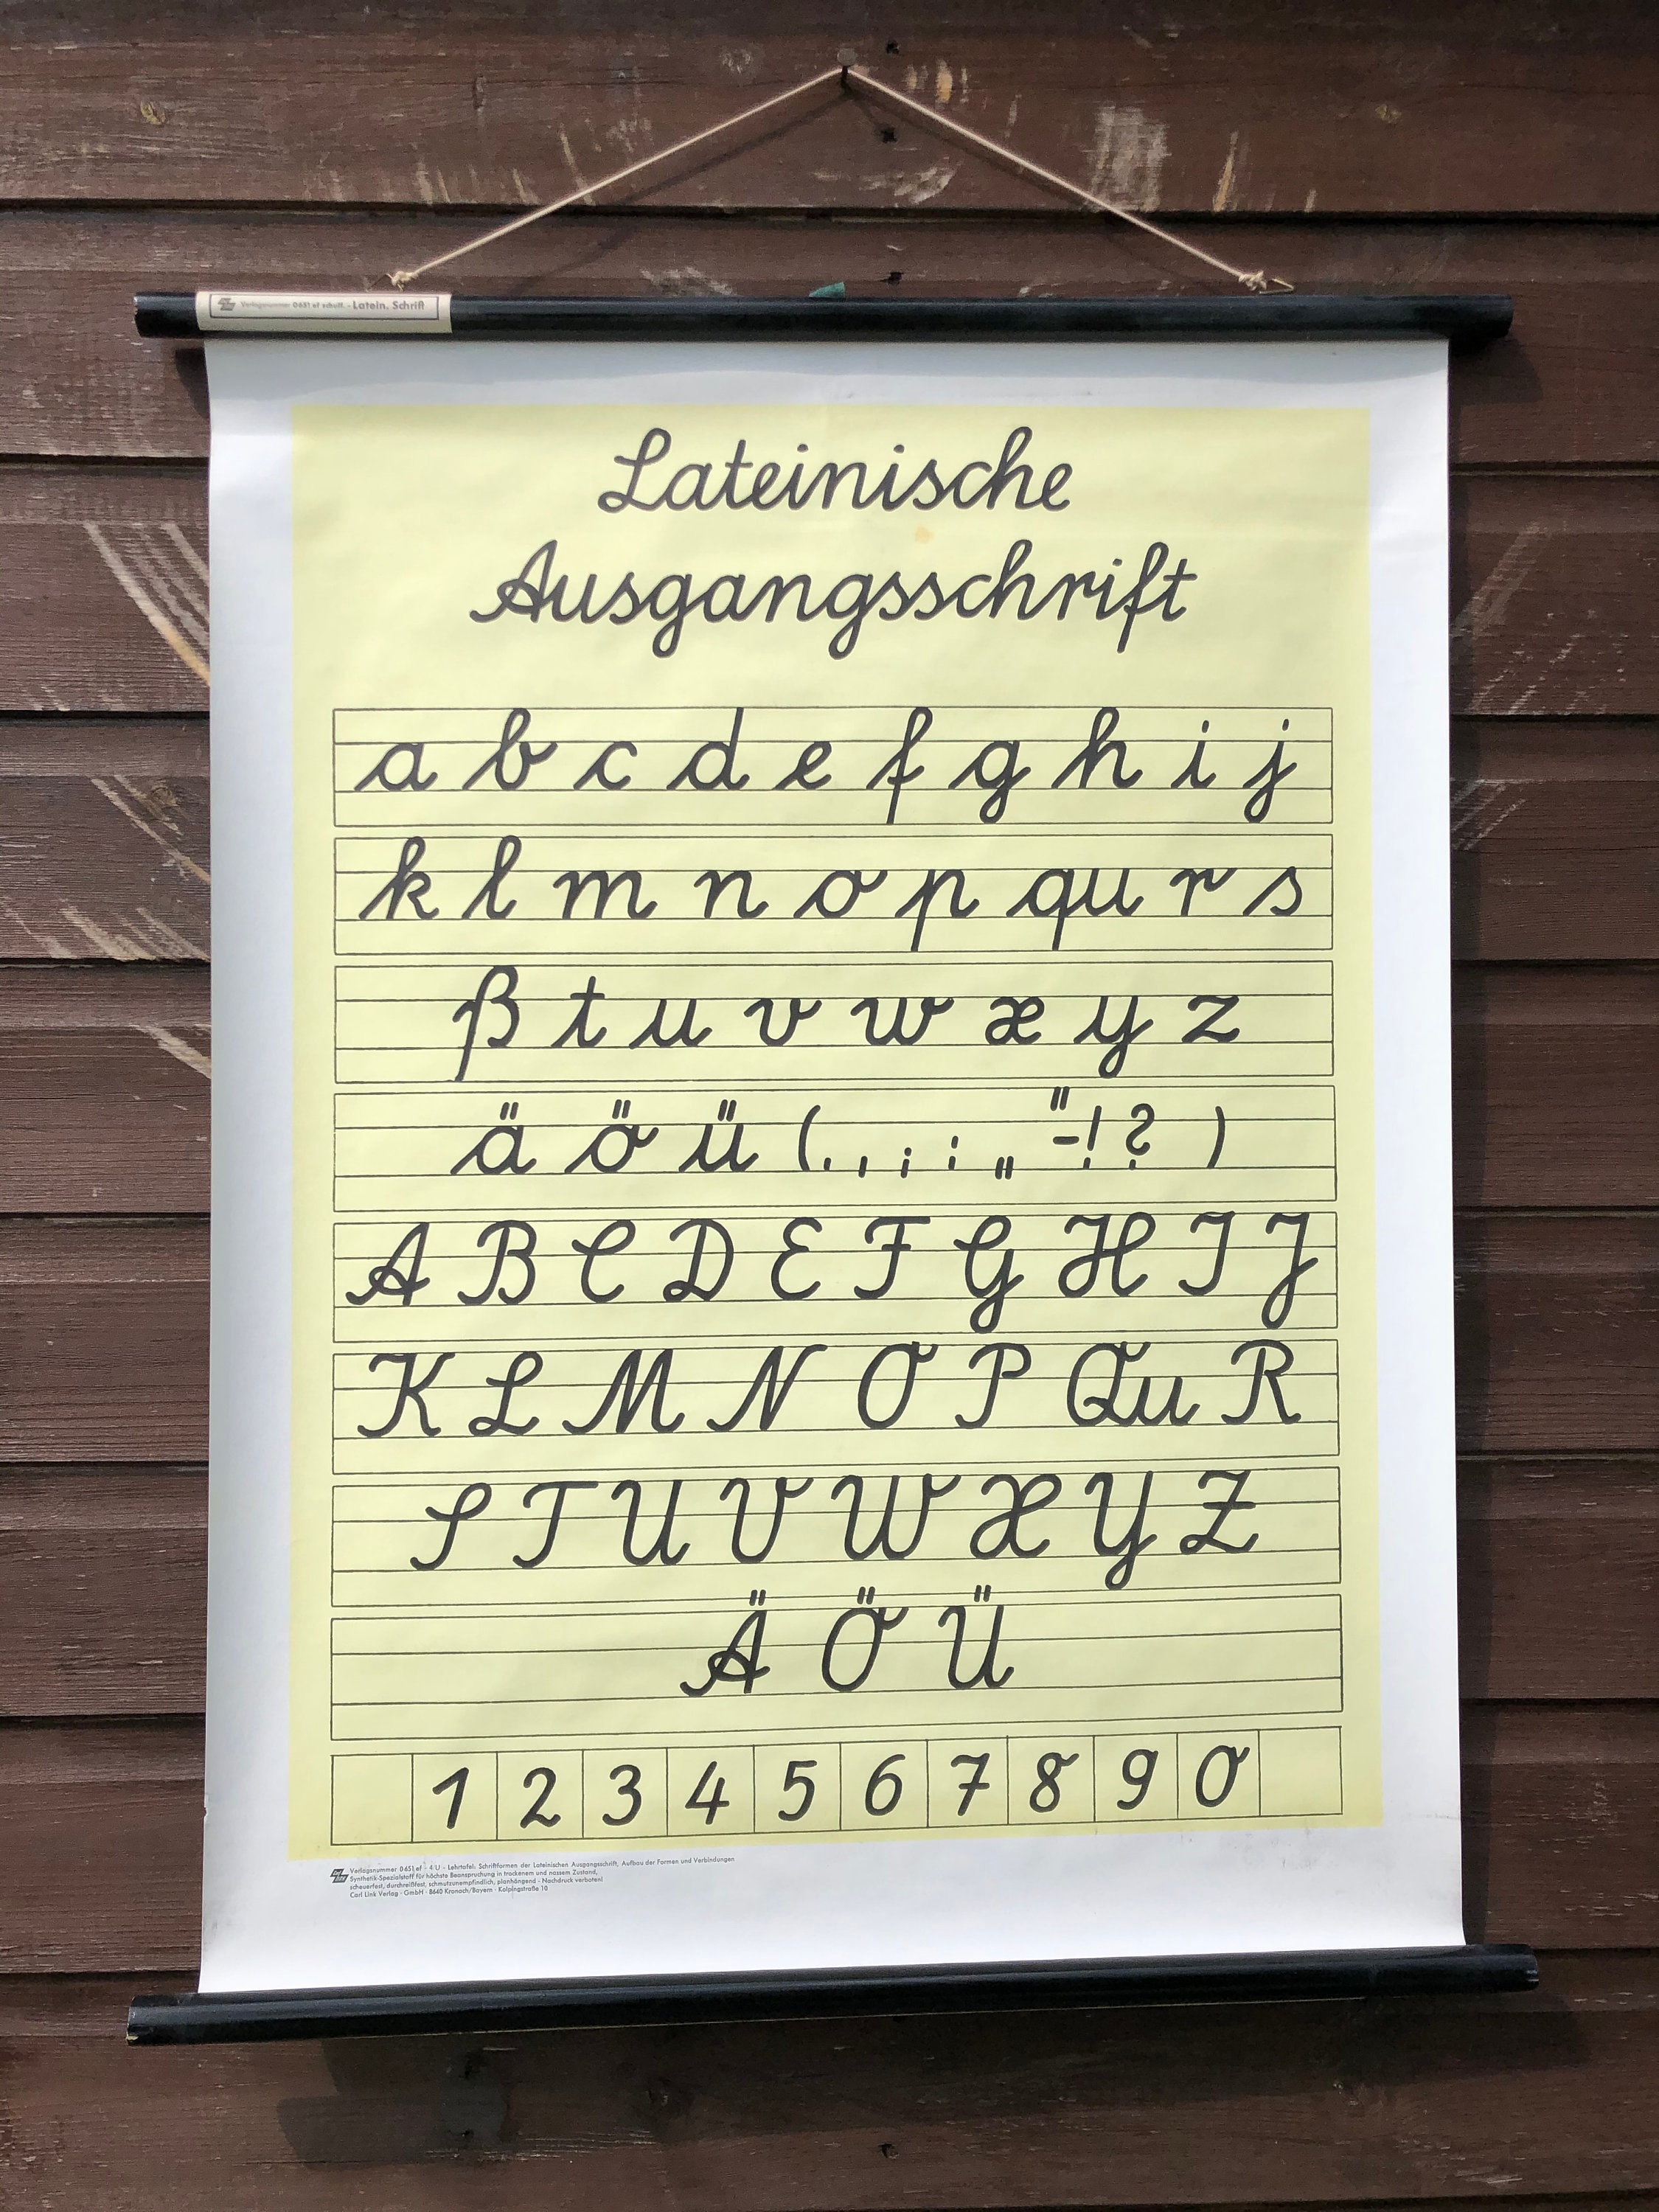 Verlagsnummer 0651 ef schutt. - Latein. Schrift
Lateinische
Ausgangsschrift
a b c d e f g h i j
k l m n o p qu r s
ß t u v w x y z
ä ö ü ( . , ; : „ " - ! ? )
A B C D E F G H I J
K L M N O P Qu R
S T U V W X Y Z
Ä Ö Ü
1 2 3 4 5 6 7 8 9 0
Verlagsnummer 0651 ef - 4 U - Lehrtafel: Schriftformen der Lateinischen Ausgangsschrift, Aufbau der Formen und Verbindungen
Synthetik-Spezialstoff für höchste Beanspruchung in trockenem und nassem Zustand,
scheuerfest, durchreißfest, schmutzunempfindlich, planhängend - Nachdruck verboten!
Carl Link Verlag - GmbH - 8640 Kronach/Bayern - Kolpingstraße 10